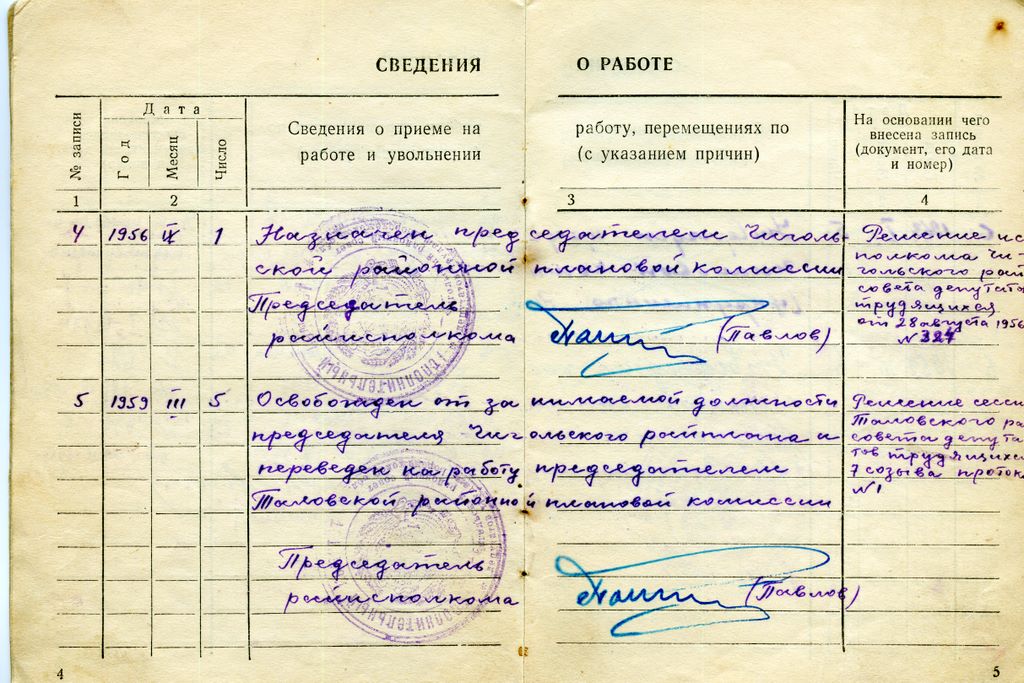 СВЕДЕНИЯ О РАБОТЕ
№ записи
Дата
Год
Месяц
Число
Сведения о приеме на работу, перемещениях по
работе и увольнении (с указанием причин)
На основании чего
внесена запись
(документ, его дата
и номер)
1 2 3 4
4 1956 IX 1 Назначен председателем Чиголь-
ской районной плановой комиссии
Председатель
райисполкома (Павлов)
Решение ис
полкома Чи-
гольского рай
совета депутатов
трудящихся
от 28 августа 1956
№ 327
5 1959 III 5 Освобожден от занимаемой должности
председателя Чигольского райплана и
переведен на работу председателем
Таловской районной плановой комиссии
Председатель
райисполкома (Павлов)
Решение сесси
Таловского ра
совета депута
тов трудящихся
7 созыва проток
№1
4
5